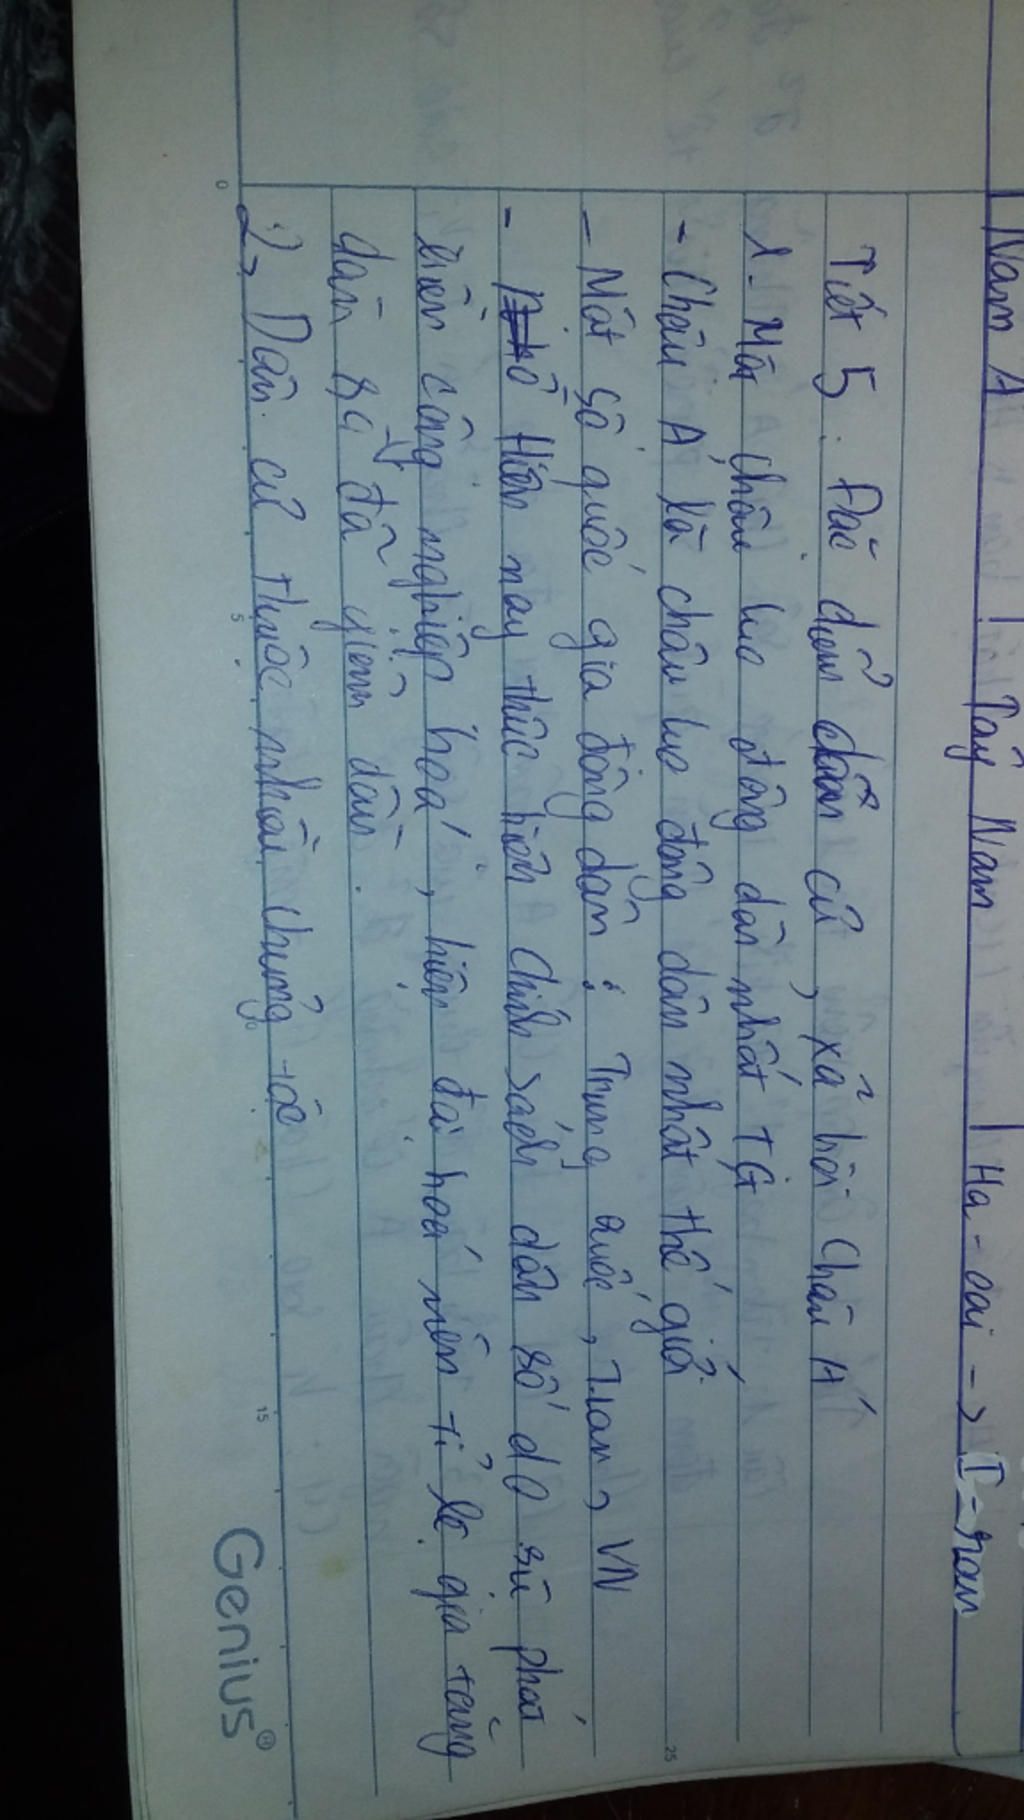 Nam Á | Tây Nam | Ha-oai -> I-ran
Tiết 5. Đặc điểm dân cư, xã hội Châu Á
1. Một châu lục đông dân nhất TG
- Châu Á là châu lục đông dân nhất thế giới
- Một số quốc gia đông dân : Trung Quốc, , VN
- Hiện nay thức hiện chính sách dân số do sự phát
triển công nghiệp hoá, hiện đại hoá nên tỉ lệ gia tăng
dân số đã giảm dần.
2, Dân cư thuộc nhiều chủng tộc
0
5
15
25
Genius®